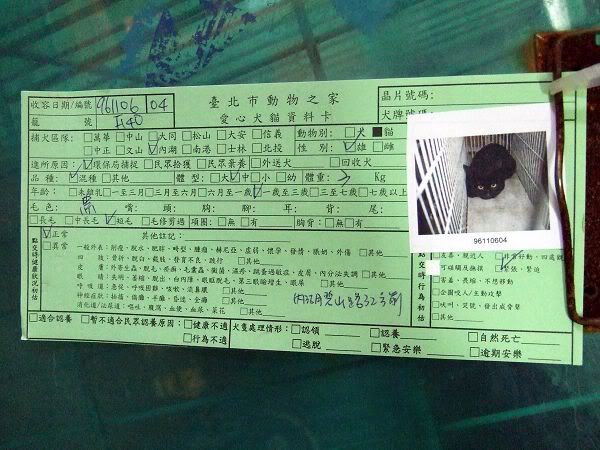 收容日期/編號 961106 04 臺北市動物之家 晶片號碼:
籠 號 愛心犬貓資料卡 犬牌號碼:
捕犬區隊: □萬華 □中山 □大同 □松山 □大安 □信義 動物別: □犬 ■貓
□中正 □文山 ☑內湖 □南港 □士林 □北投 性 別: ☑雄 □雌
進所原因: ☑環保局捕捉 □民眾拾獲 □民眾棄養 □外送犬 □回收犬
品 種: ☑混種 □其他 體 型: □大 ☑中 □小 □幼 體重: 3
年齡: □未離乳 □一至三月 □三月至六月 □六月至一歲 ☑一歲至三歲 □三至七歲 □七歲以上
毛 色: 黑 嘴: 頭: 胸: 腳: 耳: 背: 尾:
□長毛 □中長毛 ☑短毛 □毛修剪過 項圈: □無 □有: 胸背: □無 □有:
96110604
點交時健康狀況初估
☑正常 其他註記:
□異常 一般外表: 削瘦、脫水、肥胖、畸型、腫瘤、赫尼亞、虛弱、懷孕、發情、哺奶、外傷 □其他
四 肢: 骨折、脫臼、截肢、發育不良、跛行 □其他
皮 膚: 外寄生蟲、脫毛、疥癬、毛囊蟲、黴菌、濕疹、跳蚤過敏症、皮屑、內分泌失調 □其他
眼 睛: 失明、萎縮、脫出、白內障、眼瞼脫毛、第三眼瞼增生、眼屎 □其他
呼 吸 道: 急促、呼吸困難、咳嗽、流鼻膿 □其他
神經症狀: 抽搐、偏癱、半癱、昏迷、全癱 □其他
消化道/泌尿道: 嘔吐、腹瀉、血便、血尿、茶花 □其他
點交時行為初估
□友善、親近人
□可碰觸且撫摸
□害羞、畏縮、不想移動
□公開咬人/主動攻擊
□吠叫、哭號、發出威脅聲
□其他
□適合認養 □暫不適合民眾認養原因: □健康不適 犬隻處理情形: □認領 □認養 □自然死亡
□行為不適 □逃脫 □緊急安樂 □逾期安樂